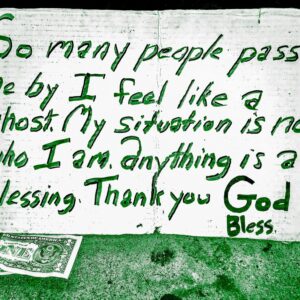 So many people pass
e by I feel like a
host. My situation is no
ho I am. anything is a
lessing. Thank you God
Bless.